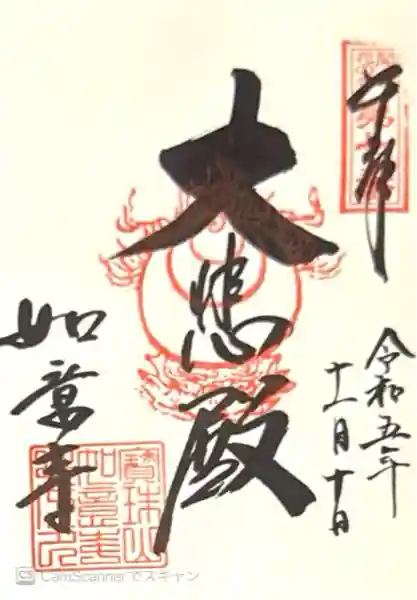 奉拝
大悲殿
令和五年
十一月十日
如意寺
寶珠山
如意寺
CamScanner でスキャン